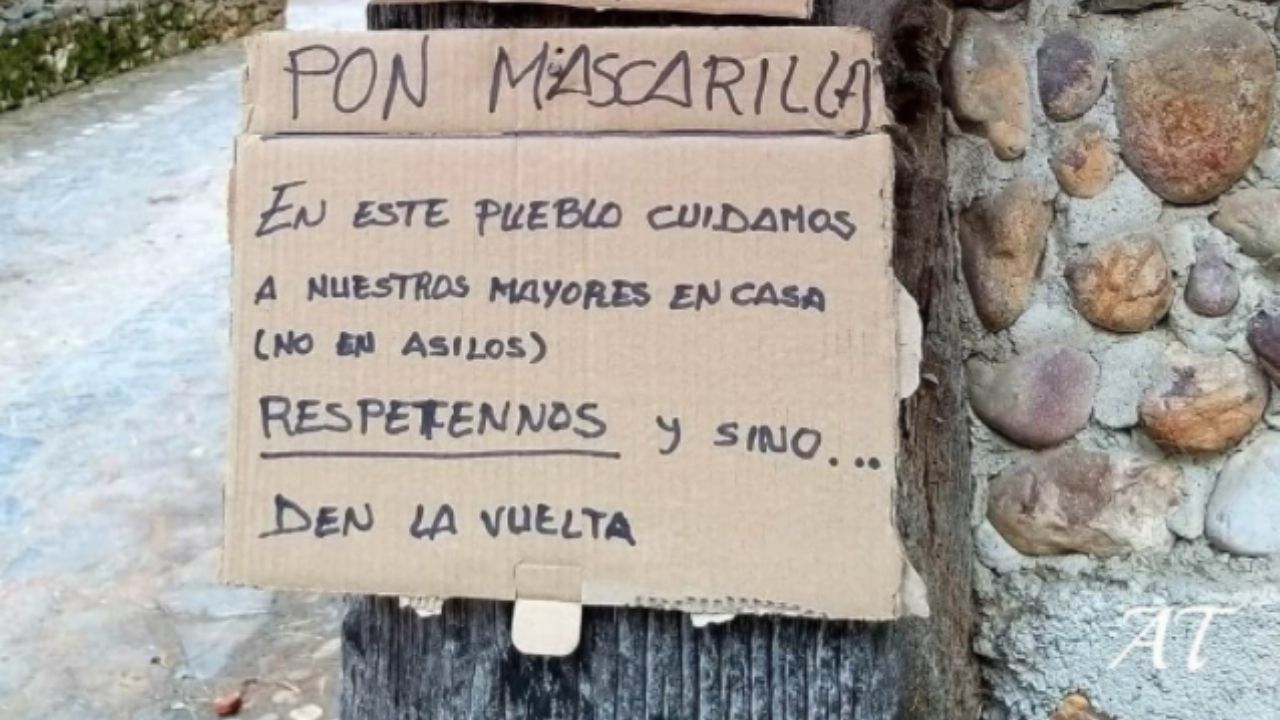 PON MASCARILLA
EN ESTE PUEBLO CUIDAMOS
A NUESTROS MAYORES EN CASA
(NO EN ASILOS)
RESPETENNOS Y SINO...
DEN LA VUELTA
AT